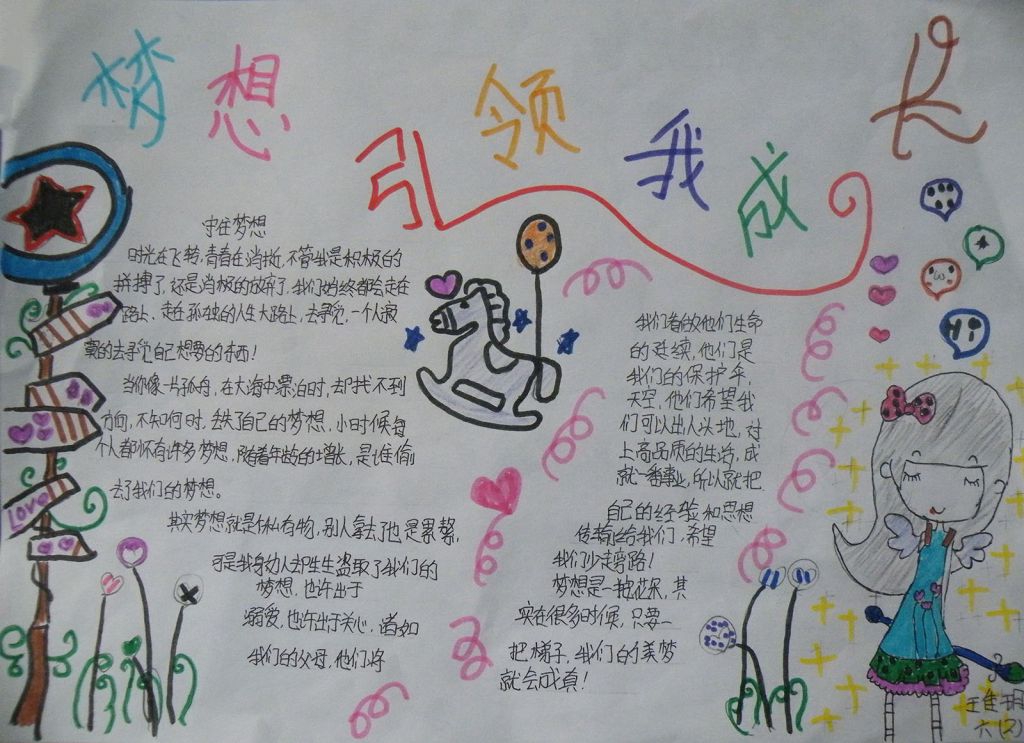 梦想引领我成长
守住梦想
时光在飞转,青春在消散,不管我是积极的
拼搏了,还是消极的放弃了,我们始终都会走在
路上、走在孤独的人生大路上,去寻觅,一个人寂
寞的去寻觅自己想要的东西!
当你像一片孤舟,在大海中漂泊时,却找不到
方向,不知何时,丢失自己的梦想,小时候每
个人都怀有许多梦想,随着年龄的增长,是谁偷
去了我们的梦想。
其实梦想就是你私有物,别人拿去了也是累赘,
可是我身边人却生生盗取了我们的
梦想,也许出于
溺爱,也许出于关心,诸如
我们的父母,他们将
我们看做他们生命
的延续,他们是
我们的保护伞,
天空,他们希望我
们可以出人头地,对
上高品质的生活,成
就一番事业,所以就把
自己的经验和思想
传输给我们,希望
我们少走弯路!
梦想是一抱花朵,其
实在很多时候,只要一
把梯子,我们的美梦
就会成真!
LOVE
Hi
六(2)